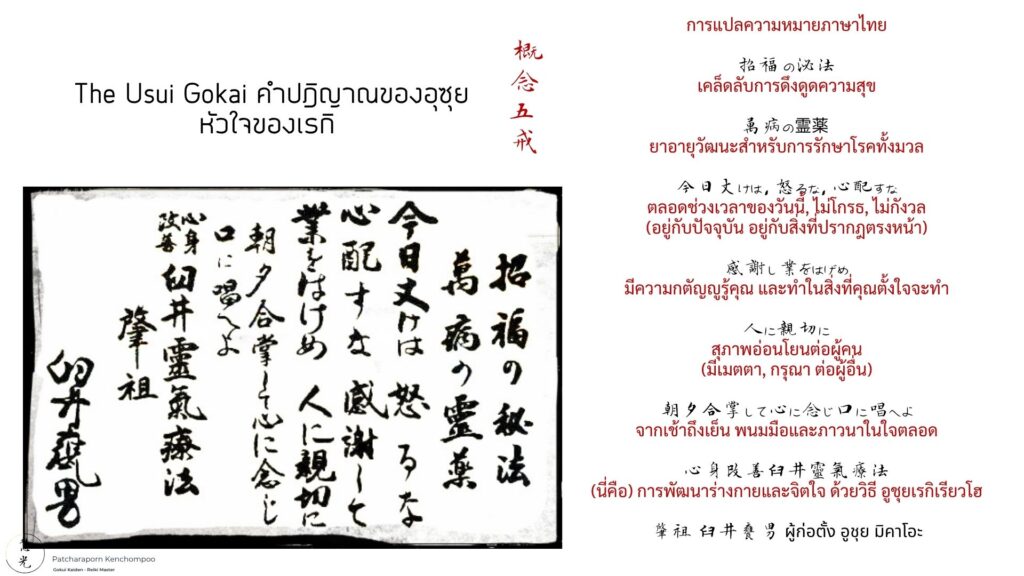 The Usui Gokai คำปฏิญาณของอุซุย
หัวใจของเรกิ
概念五戒
招福の秘法
萬病の靈薬
今日丈けは 怒るな
心配すな 感謝して
業をはけめ 人に親切に
朝夕合掌して心に念じ
口に唱へよ
心身
改善
臼井靈氣療法
肇祖
臼井甕男
Patcharaporn Kenchompoo
Gokui Kaiden - Reiki Master
การแปลความหมายภาษาไทย
招福の泌法
เคล็ดลับการดึงดูดความสุข
萬病の霊薬
ยาอายุวัฒนะสำหรับการรักษาโรคทั้งมวล
今日丈けは, 怒るな, 心配すな
ตลอดช่วงเวลาของวันนี้, ไม่โกรธ, ไม่กังวล
(อยู่กับปัจจุบัน อยู่กับสิ่งที่ปรากฎตรงหน้า)
感謝し業をはげめ
มีความกตัญญูรู้คุณ และทำในสิ่งที่คุณตั้งใจจะทำ
人に親切に
สุภาพอ่อนโยนต่อผู้คน
(มีเมตตา, กรุณา ต่อผู้อื่น)
朝夕合掌して心に念じ口に唱へよ
จากเช้าถึงเย็น พนมมือและภาวนาในใจตลอด
心身改善臼井靈氣療法
(นี่คือ) การพัฒนาร่างกายและจิตใจ ด้วยวิธี อูชุยเรกิเรียวโฮ
肇祖 臼井甕男 ผู้ก่อตั้ง อูชุย มิคาโอะ